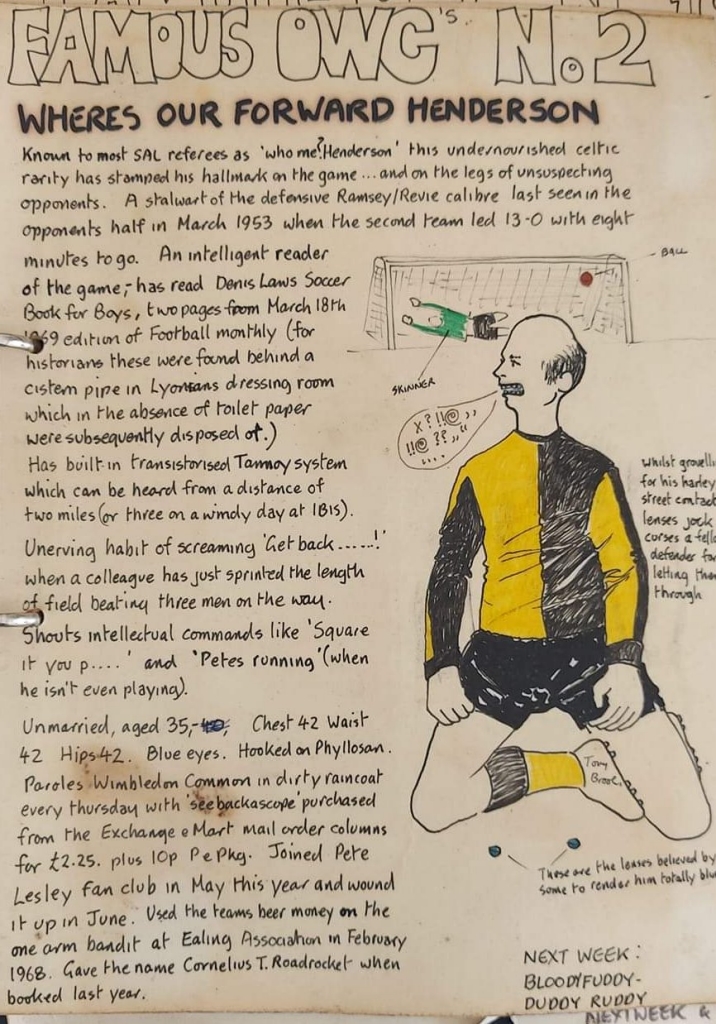 FAMOUS OWC's No. 2
WHERES OUR FORWARD HENDERSON
Known to most SAL referees as 'who me? Henderson' this undernourished celtic
rarity has stamped his hallmark on the game... and on the legs of unsuspecting
opponents. A stalwart of the defensive Ramsey/Revie calibre last seen in the
opponents half in March 1953 when the second team led 13-0 with eight
minutes to go. An intelligent reader
of the game,- has read Denis Laws Soccer
Book for Boys, two pages from March 18th
1969 edition of Football monthly (for
historians these were found behind a
cistern pipe in Lyonians dressing room
which in the absence of toilet paper
were subsequently disposed of.)
Has built in transistorised Tannoy system
which can be heard from a distance of
two miles (or three on a windy day at IBIS).
Unerving habit of screaming 'Get back......!'
when a colleague has just sprinted the length
of field beating three men on the way.
Shouts intellectual commands like 'Square
it you p....' and 'Petes running' (when
he isn't even playing).
Unmarried, aged 35,- Chest 42 Waist
42 Hips 42. Blue eyes. Hooked on Phyllosan.
Paroles Wimbledon Common in dirty raincoat
every thursday with 'seebackascope' purchased
from the Exchange e Mart mail order columns
for £2.25. plus 10p P e Pkg. Joined Pete
Lesley fan club in May this year and wound
it up in June. Used the teams beer money on the
one arm bandit at Ealing Association in February
1968. Gave the name Cornelius T. Roadrocket when
booked last year.
BALL
SKINNER
x?!!@,,
!!@ ??,,
....
whilst
for his harley
street contact
lenses jock
curses a
defender
letting
through
Tony
These are the lenses believed by
some to render him totally
NEXT WEEK:
BLOODYFUDDY-
DUDDY RUDDY
NEXT WEEK &